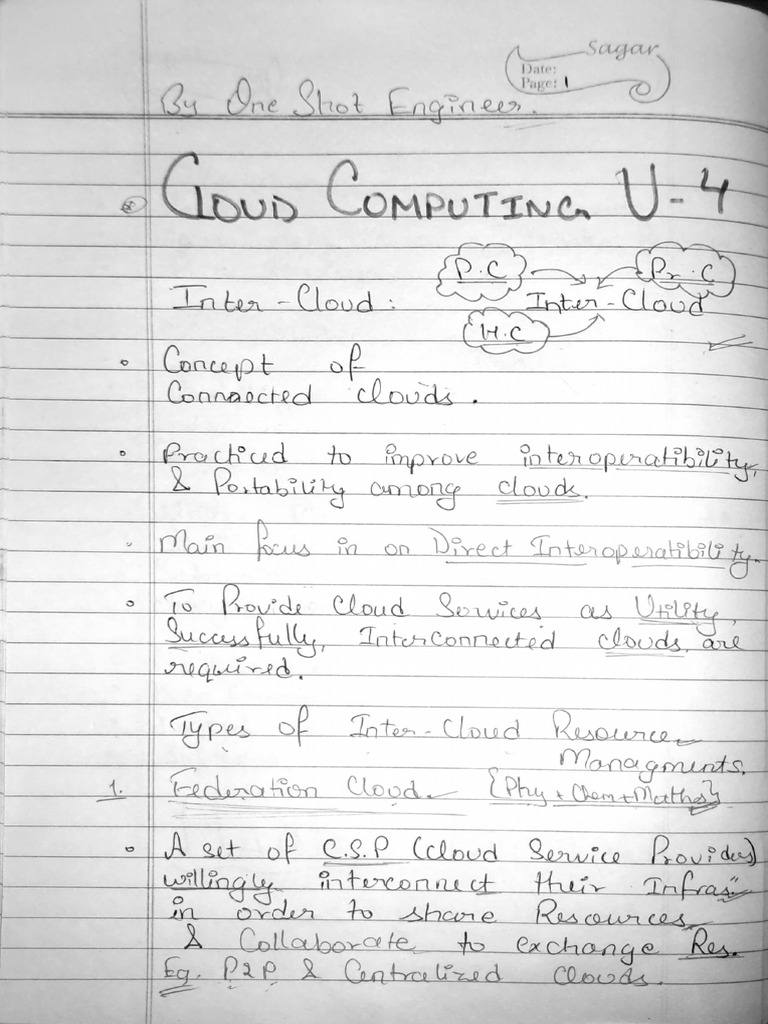 Sagar
Date:
Page: 1
By One Shot Engineer.
Cloud Computing U-4
P.C
Pr.C
Inter-Cloud: Inter-Cloud
H.C
Concept of
Connected clouds.
Practiced to improve interoperatibility,
& Portability among clouds.
Main focus in on Direct Interoperatibility.
To Provide Cloud Services as Utility,
Successfully, Interconnected clouds are
required.
Types of Inter-Cloud Resource
Managments.
1. Federation Cloud. {Phy + Chem + Maths}
A set of C.S.P (Cloud Service Provider)
willingly interconnect their Infras.
in order to share Resources
& Collaborate to exchange Res.
Eg. P2P & Centralized Clouds.